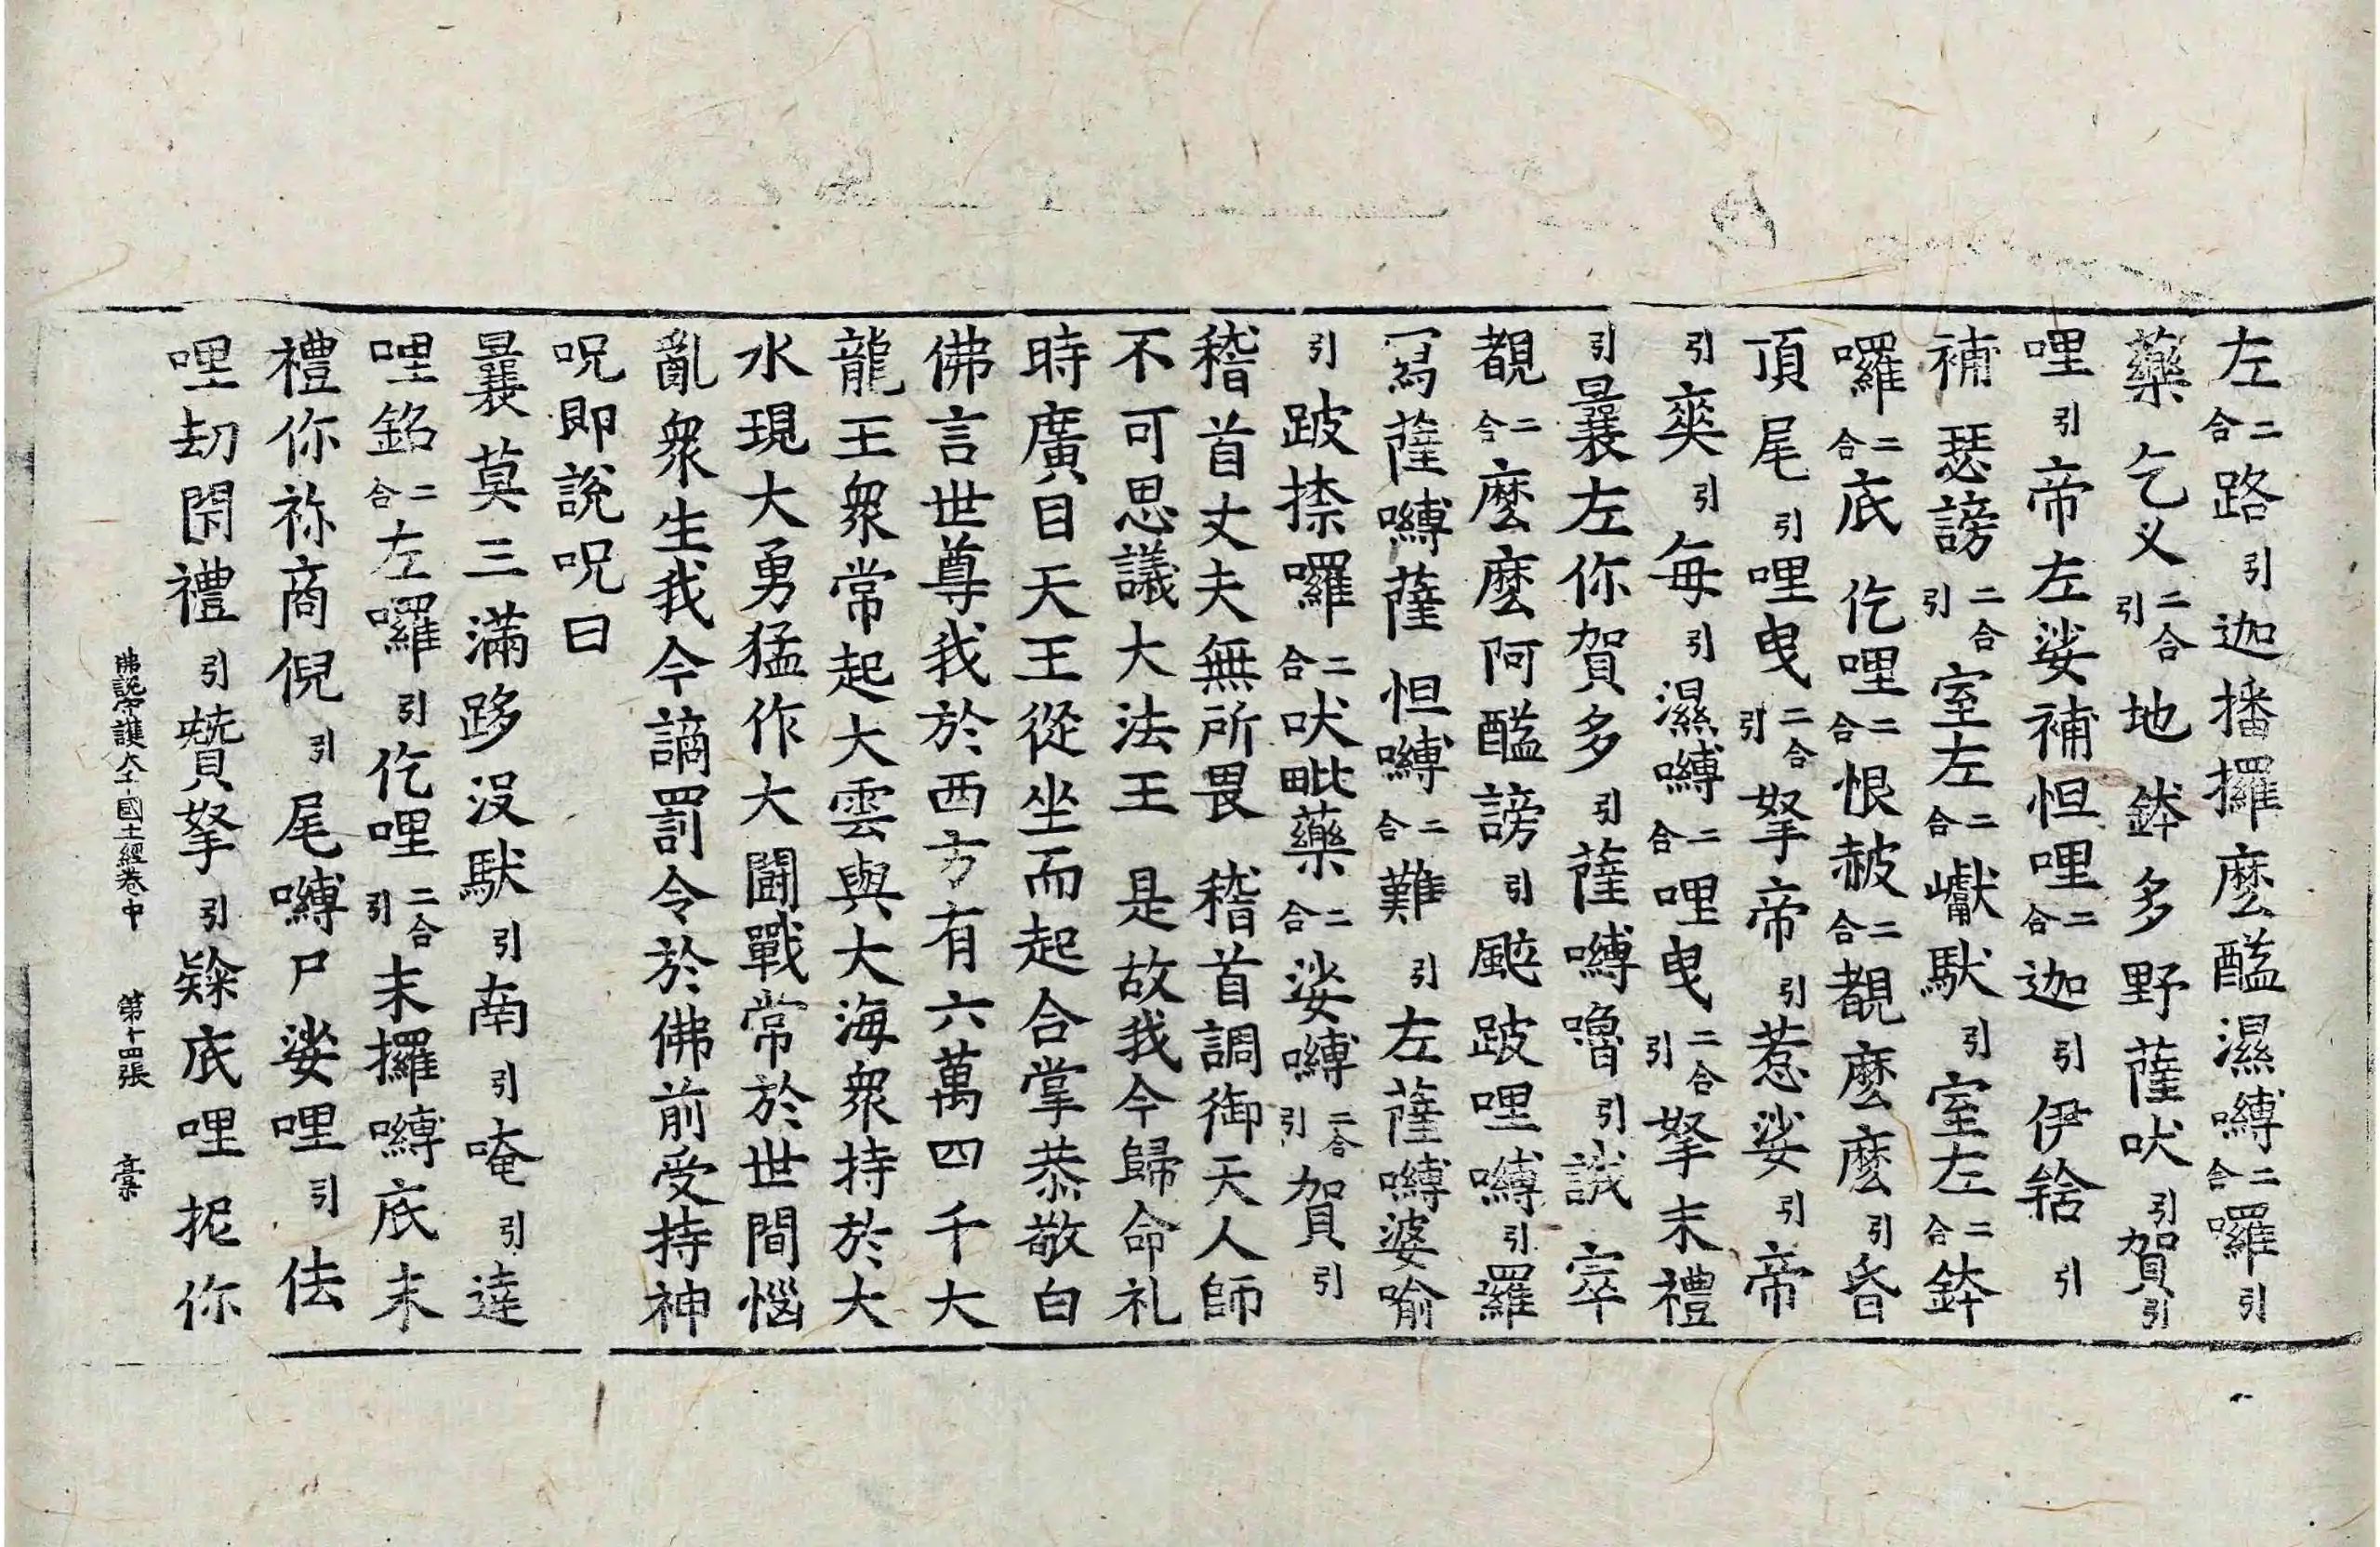 左二合路引迦播攞麼醯濕嚩二合囉引
藥乞叉二合引地鉢多野薩吠引賀引
哩引帝左娑補怛哩二合迦引伊鋡引
補瑟謗二合引室左二合巘馱引室左二合鉢
囉二合底仡哩二合恨赦二合覩麼麼引昏
頂尾引哩曳二合引拏帝引惹娑引帝
引爽引每引濕嚩二合哩曳二合引拏末禮
引曩左你賀多引薩嚩嚕引誐窣
覩二合麼麼阿醯謗引颰跛哩嚩引羅
寫薩嚩薩怛嚩二合難引左薩嚩婆喻
引跛捺囉二合吠毗藥二合娑嚩二合引賀引
稽首丈夫無所畏　稽首調御天人師
不可思議大法王　是故我今歸命礼
時廣目天王從坐而起合掌恭敬白
佛言世尊我於西方有六萬四千大
龍王衆常起大雲與大海衆持於大
水現大勇猛作大鬪戰常於世間惱
亂衆生我今謫罰令於佛前受持神
呪即說呪曰
曩莫三滿跢沒馱引南引唵引達
哩銘二合左囉引仡哩二合引末攞嚩底末
禮你祢商倪引尾嚩尸娑哩引佉
哩刧閇禮引贊拏引底哩抳你
佛說守護大千國土經卷中　第十四張　槀